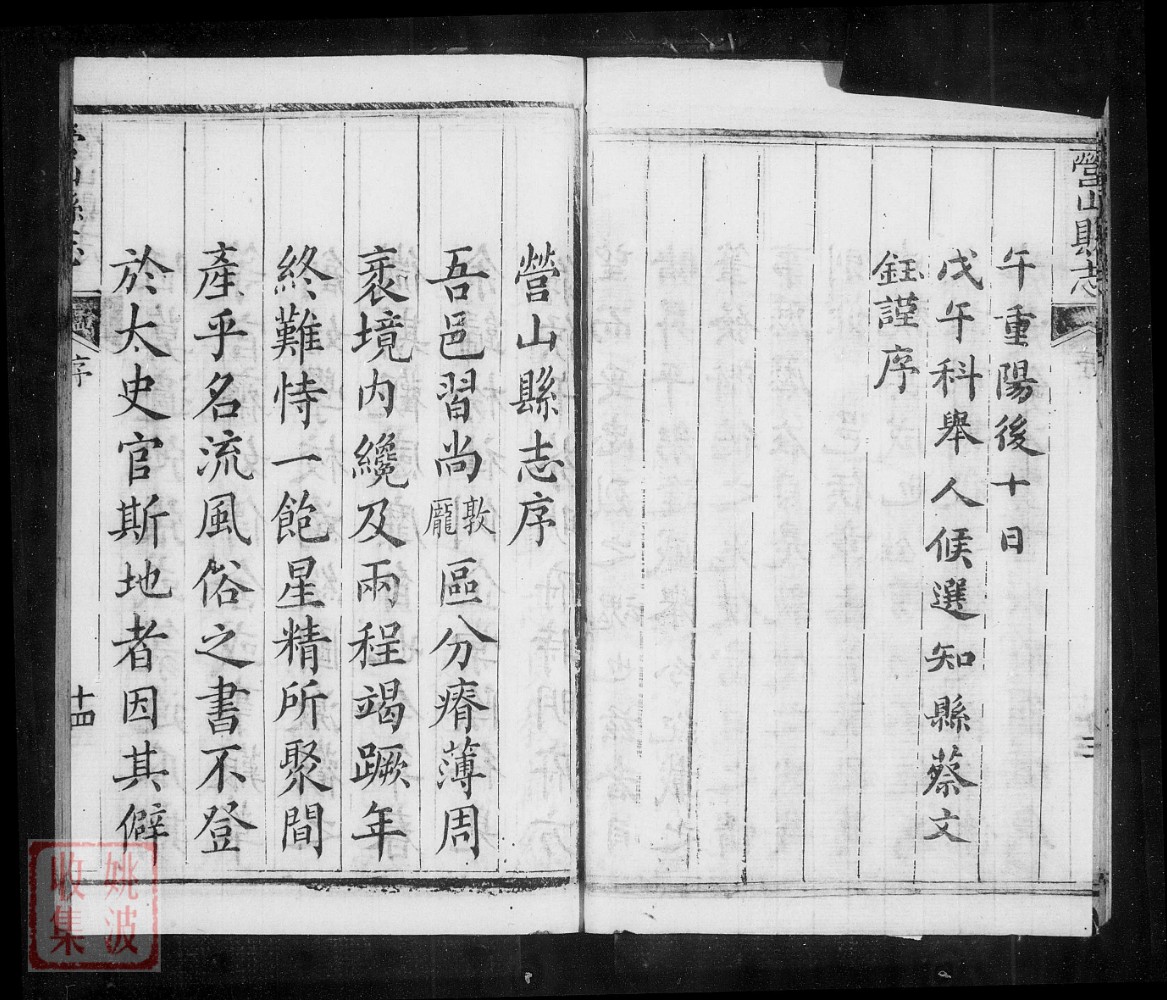 營山縣志
序
午重陽後十日
戊午科舉人候選知縣蔡文
鈺謹序
營山縣志序
吾邑習尚敦龎區分瘠薄周
袤境內纔及兩程竭蹶年
終難恃一飽星精所聚間
產乎名流風俗之書不登
於太史官斯地者因其僻
營山縣志
序
十四
姚波
收集